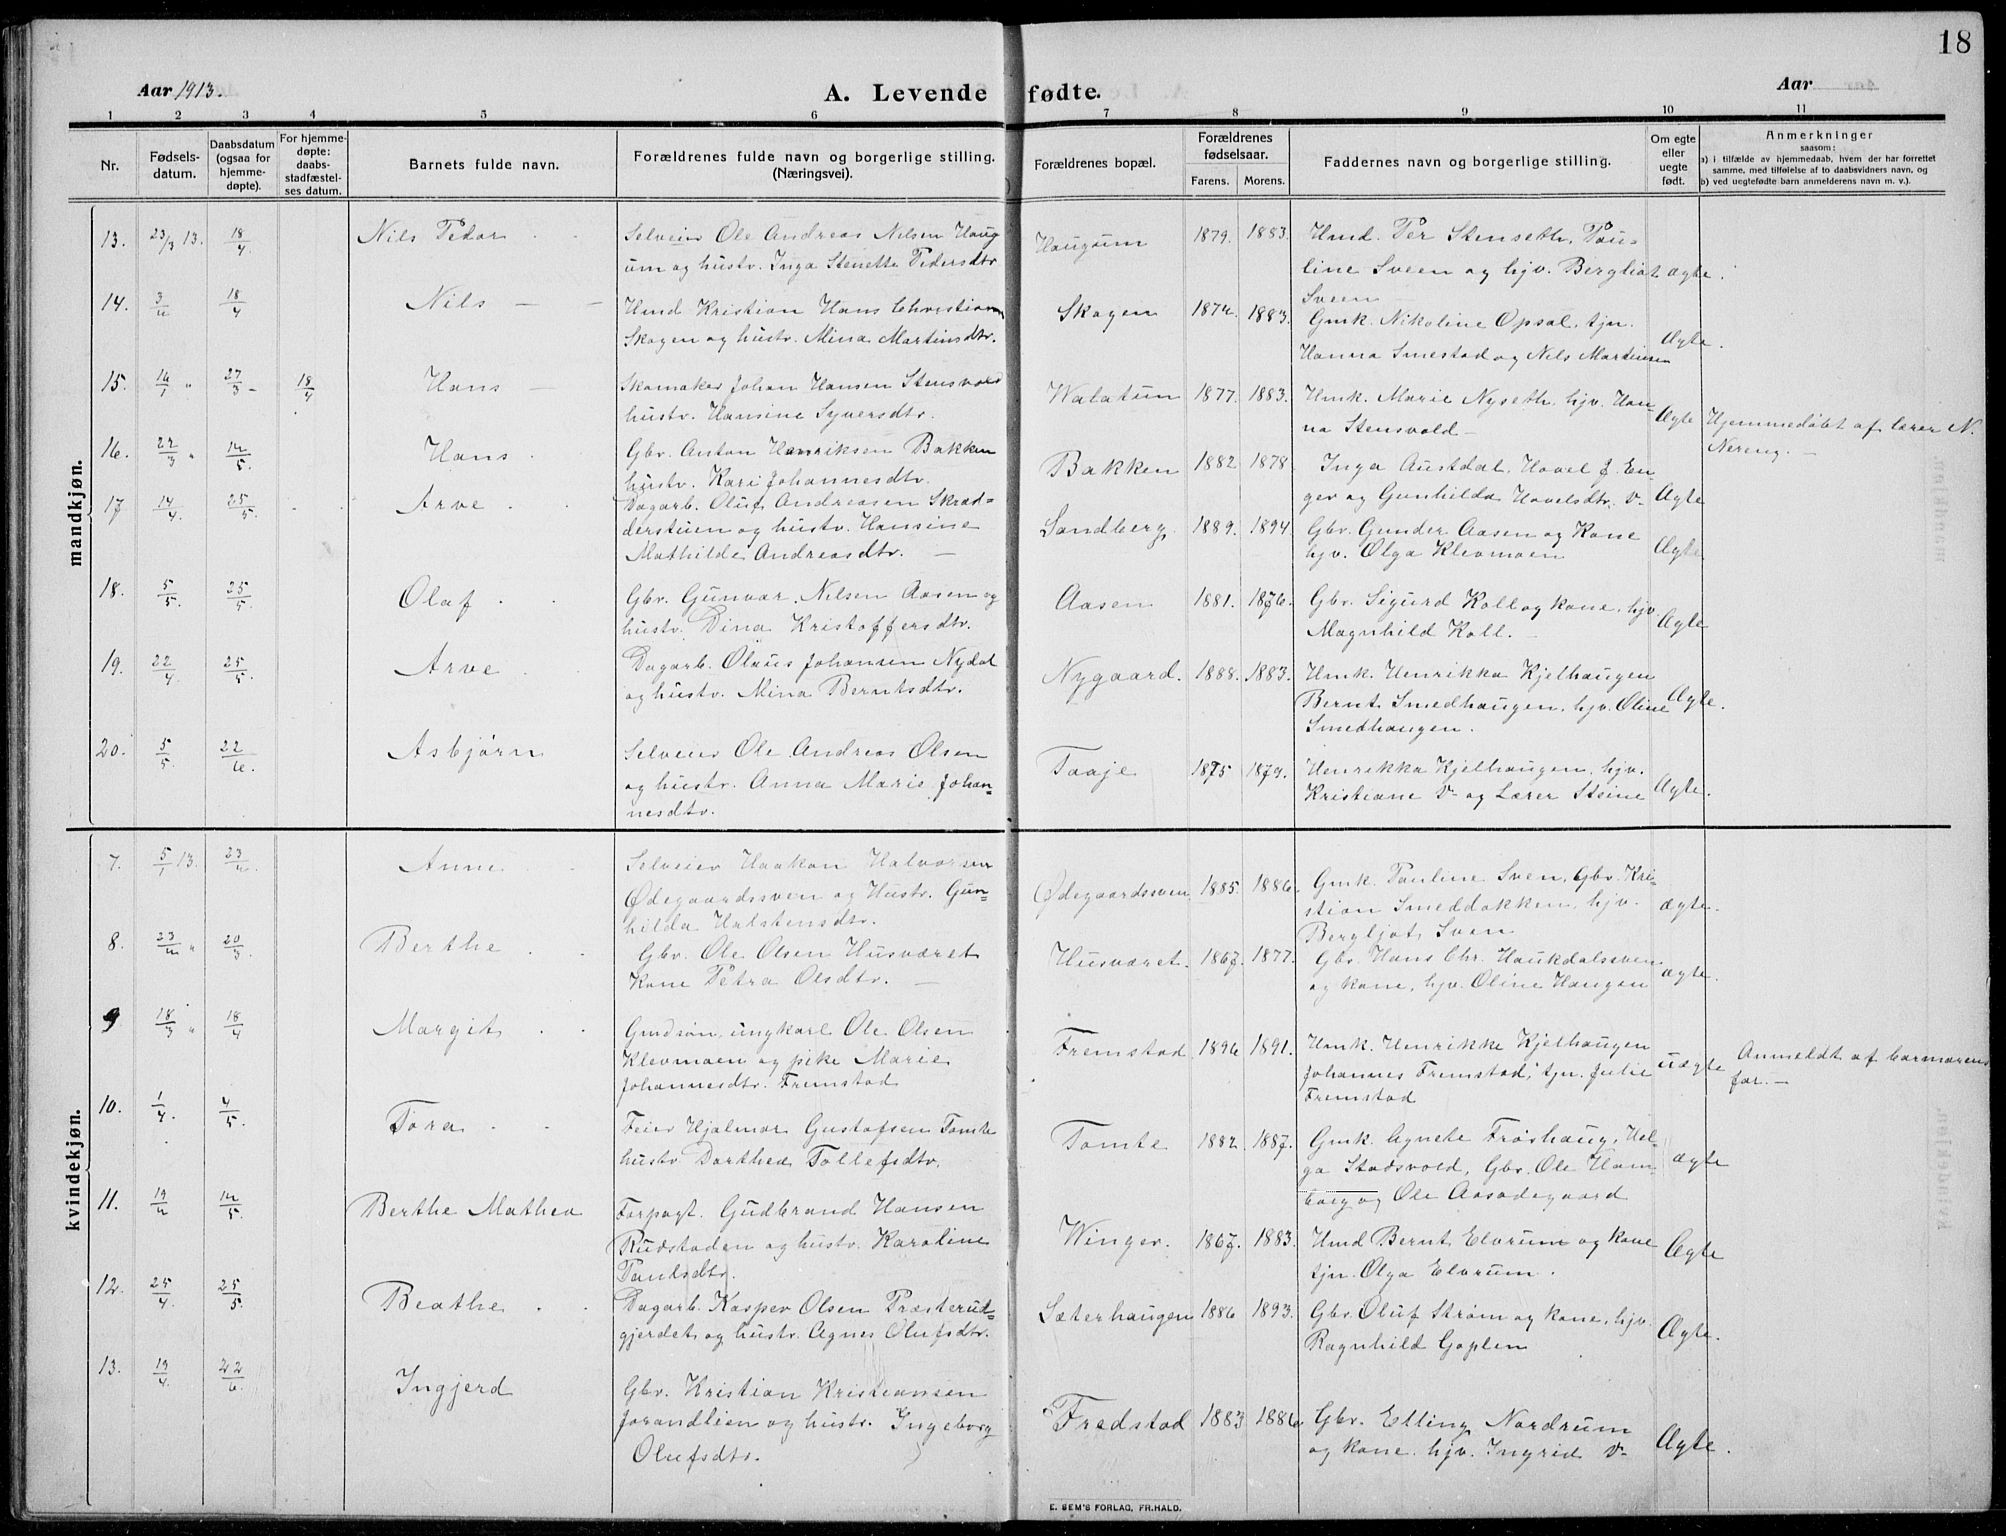 18
Aar 1913.
A. Levende fødte.
Aar
1 2 3 4 5 6 7 8 9 10 11
Nr.
Fødsels-
datum.
Daabsdatum
(ogsaa for
hjemme-
døpte).
For hjemme-
døpte:
daabs-
stadfæstel-
ses datum.
Barnets fulde navn.
Forældrenes fulde navn og borgerlige stilling.
(Næringsvei).
Forældrenes bopæl.
Forældrenes
fødselsaar.
Farens. Morens.
Faddernes navn og borgerlige stilling.
Om egte
eller
uegte
født.
Anmerkninger
saasom:
a) i tilfælde av hjemmedaab, hvem der har forrettet
samme, med tilføielse af to daabsvidners navn, og
b) ved uegtefødte barn anmelderens navn m. v.).
mandkjøn.
13. 23/3 13. 18/4 Nils Peder
Selveier Ole Andreas Nilsen Haug
um og hustr. Inga Stenette Pedersdtr
Haugum 1879. 1883.
Hmd. Per Stenseth, Pau-
line Sveen og hjv. Bergliot
Sveen
Ægte.
14. 3/4 18/4 Nils
Hmd Kristian Hans Christians
Skogen og hustr. Mina Martinsdtr.
Skogen 1874. 1883.
Gmk. Nikoline Opsal, tjn.
Hanna Smestad og Nils Martinsen
Ægte.
15. 14/1 " 27/3 18/4 Hans
Skomaker Johan Hansen Stensvold
hustr. Hansine Syversdtr.
Walatun 1877. 1883.
Hmk. Marie Nyseth, hjv. Han-
na Stensvold
Ægte
Hjemmedøbt af lærer N.
Nereng.
16. 22/3 " 14/5. Hans
Gbr. Anton Henriksen Bakken
hustr. Kari Johannesdtr.
Bakken 1882 1878
Inga Austdal, Hovel J. En-
ger og Gunhilda Hovelsdtr.
Ægte
17 14/4. 25/5. Arve
Dagarb. Oluf Andreasen Skræd-
derstuen og hustr. Hansine
Mathilde Andreasdtr.
Sandberg. 1889. 1894
Gbr. Gunder Aasen og Kone
hjv. Olga Klevmoen
Ægte
18. 5/5. 25/5. Olaf
Gbr. Gunvar Nilsen Aasen og
hustr. Dina Kristoffersdtr.
Aasen 1881. 1876.
Gbr. Sigurd Koll og kone, hjv
Magnhild Koll.
Ægte
19. 22/4. 25/5. Arve
Dagarb. Olaus Johansen Nydal
og hustr. Mina Berntsdtr.
Nygaard. 1888. 1883.
Hmk. Henrikka Kjelhaugen
Bernt Smedhaugen, hjv. Oline
Smedhaugen.
Ægte.
20. 5/5. 22/6. Asbjørn
Selveier Ole Andreas Olsen
og hustr. Anna Marie Johan-
nesdtr.
Taaje 1875 1879.
Henrikka Kjelhaugen, hjv.
Kristiane og Lærer Steine
Ægte.
kvindekjøn.
7. 5/1 13. 23/4. Anne
Selveier Haakon Halvorsen
Ødegaardssven og Hustr. Gun-
hilda Halstensdtr.
Ødegaardssven 1885. 1886.
Gmk. Pauline Sven, Gbr. Kri-
stian Smeddokken, hjv.
Bergljot Sven
ægte.
8. 23/4 " 20/3. Berthe
Gbr. Ole Olsen Husværet
Kone Petra Olsdtr.
Husværet. 1867. 1877.
Gbr. Hans Chr. Haukdalssven
og kone, hjv. Oline Haugen
ægte.
9 18/3 " 18/4 Margit
Gmdsøn, ungkarl Ole Olsen
Klevmoen og pike Marie
Johannesdtr. Fremstad
Fremstad 1896 1891.
Hmk. Henrikke Kjelhaugen
Johannes Fremstad, tjn. Julie
Fremstad
uægte
Anmeldt af barmorens
far.
10. 1/4. 4/5. Tora
Feier Hjalmar Gustafsen Tomte
hustr. Dorthea Tollefsdtr.
Tomte 1882. 1887.
Gmk. Agnete Frøshaug, Hel-
ga Stadsvold, Gbr. Ole Ham-
borg og Ole Aasødegaard
ægte
11. 19/4 14/5. Berthe Mathea
Forpagt. Gudbrand Hansen
Rudstaden og hustr. Karoline
Paulsdtr.
Winger. 1867. 1883.
Hmd Bernt Elvrum og kone
tjn. Olga Elvrum.
Ægte
12. 25/4. 25/5. Beathe
Dagarb. Kasper Olsen Præsterud-
gjerdet og hustr. Agnes Olufsdtr.
Sæterhaugen 1886 1893.
Gbr. Oluf Strøm og kone, hjv.
Ragnhild Goplen
Ægte.
13. 19/4. 22/6. Ingjerd
Gbr. Kristian Kristiansen
Jorandlien og hustr. Ingeborg
Olufsdtr.
Fredstad 1883 1886.
Gbr. Elling Nordrum
og kone. hjv. Ingrid
Ægte.
E. SEM'S FORLAG, FR.HALD.